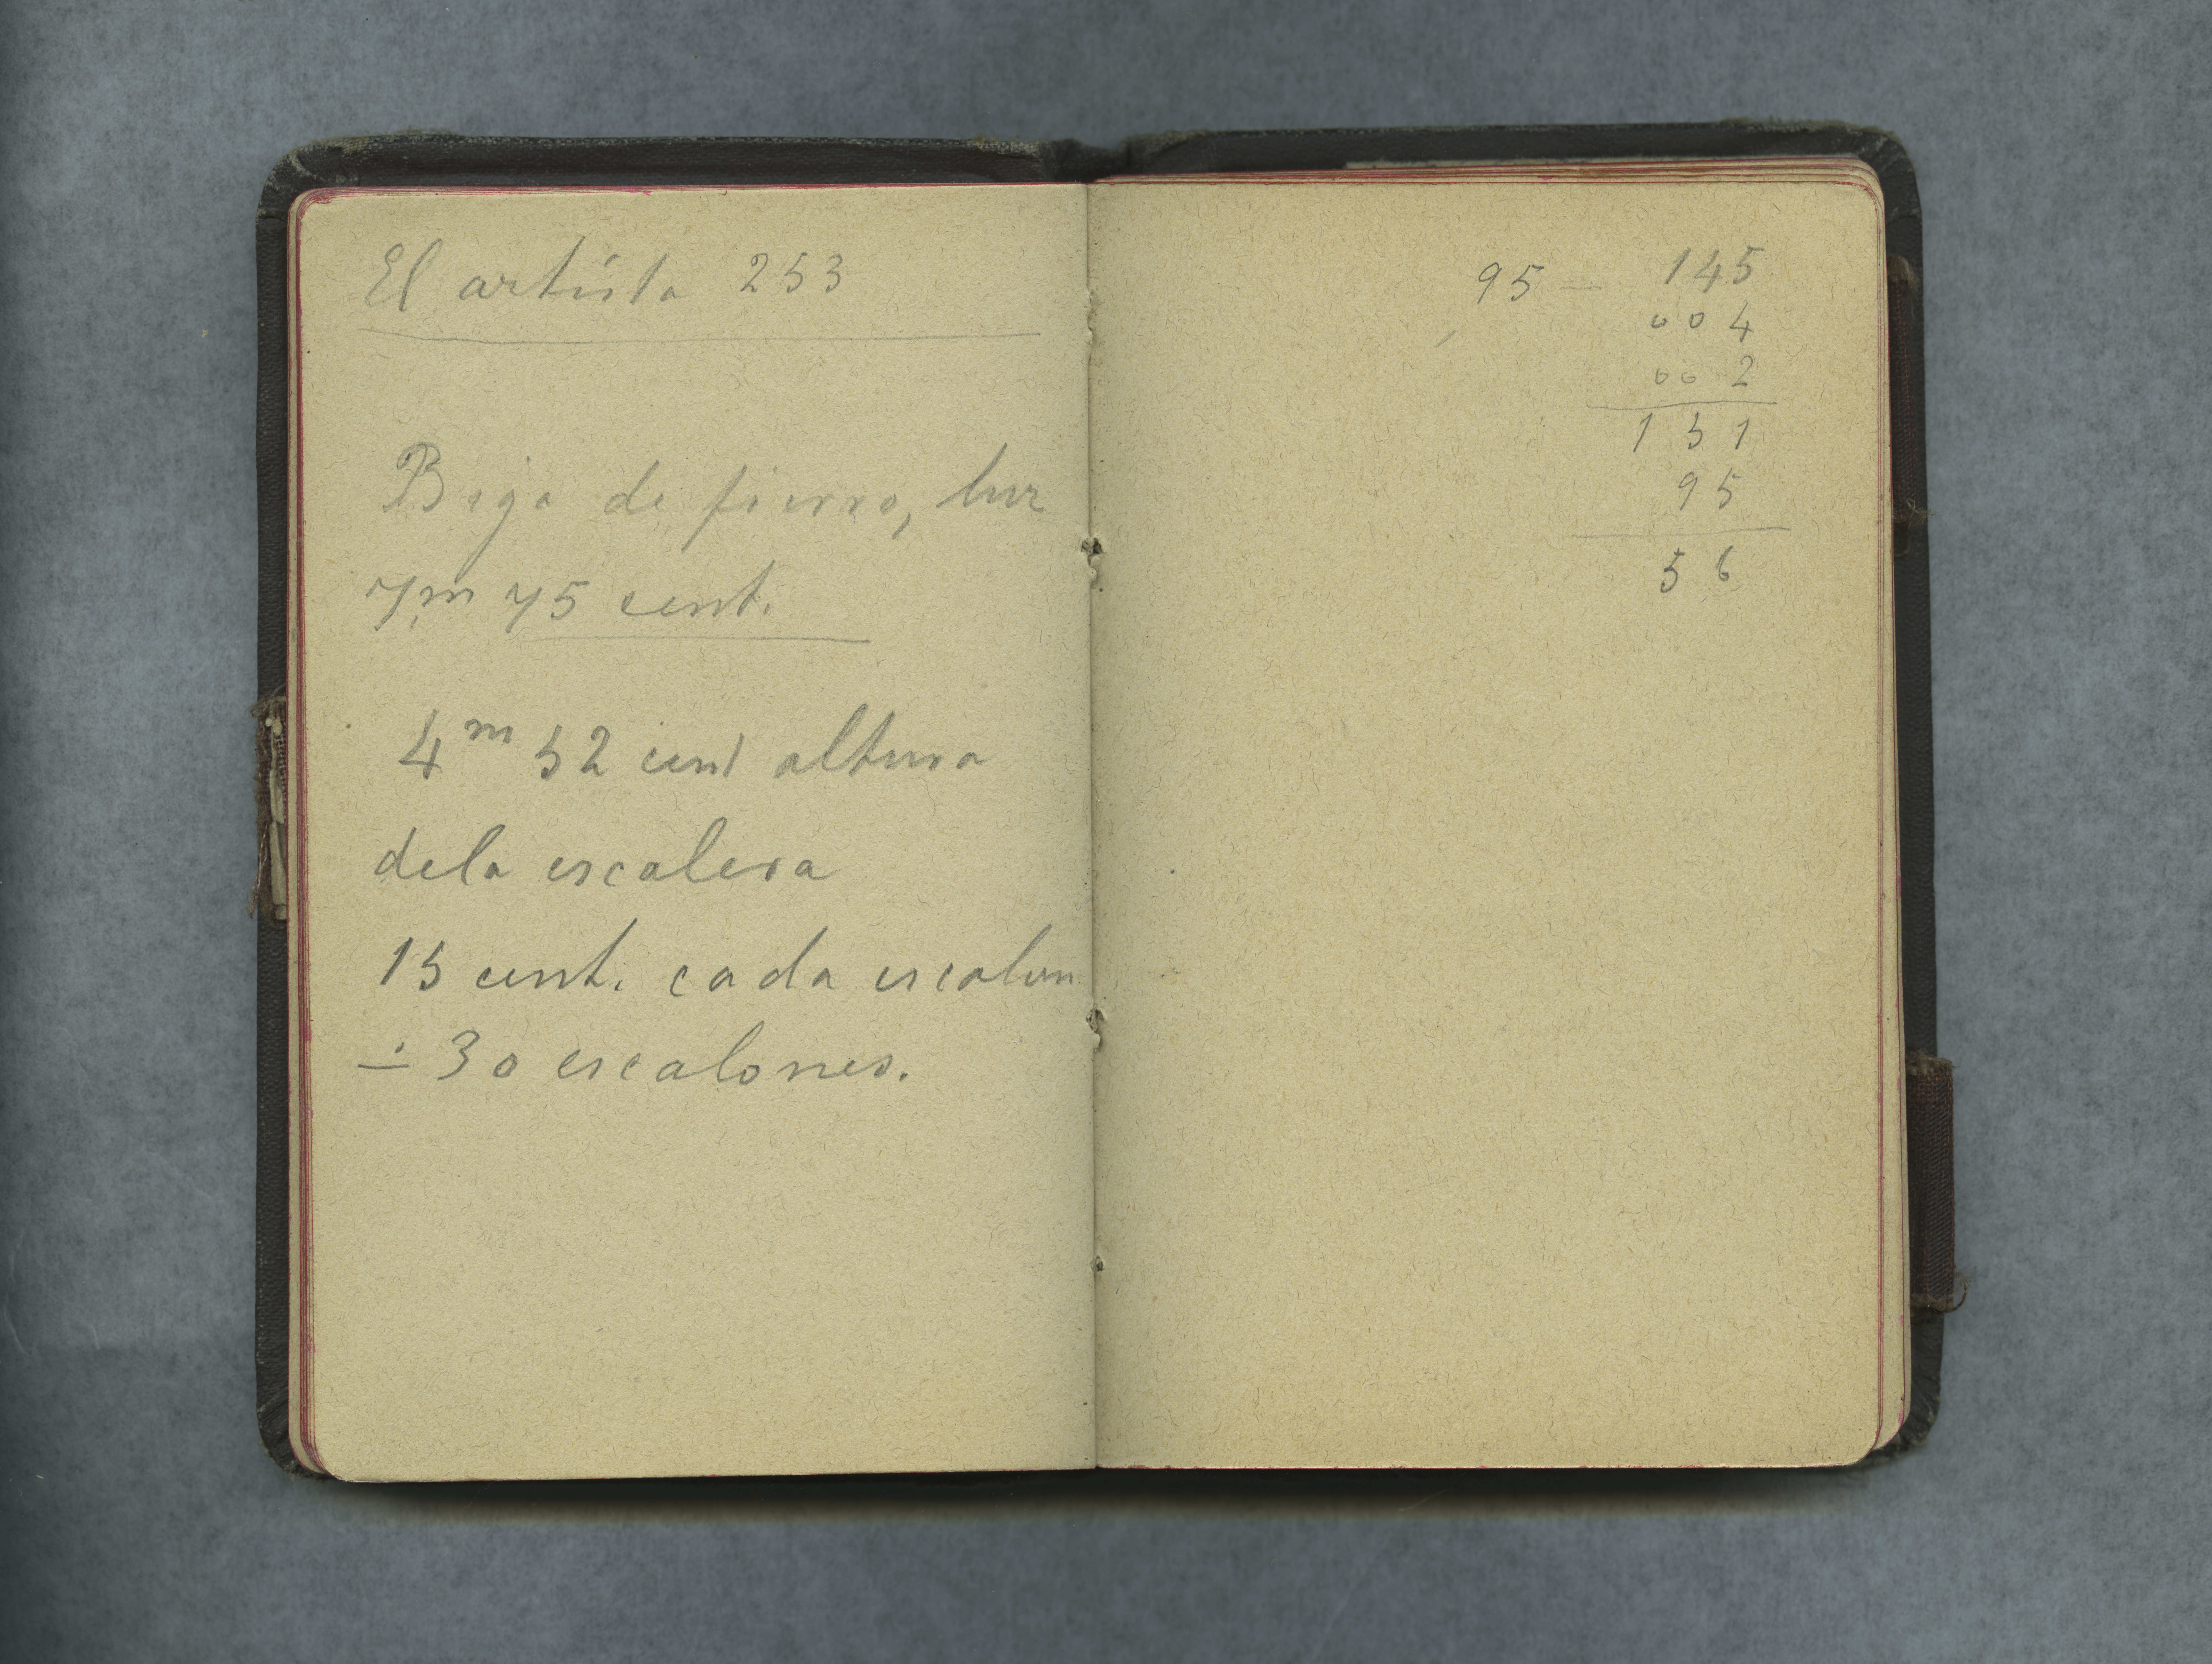 El artista 253
Biga de fierro, luz
7,m 75 cent.
4m 52 cent altura
dela escalera
15 cent. cada escalon
÷ 30 escalones.
95 — 145
004
002
151
95
56